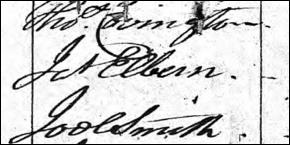 Thos. Livington
Jct Elbern.
Joel Smith.